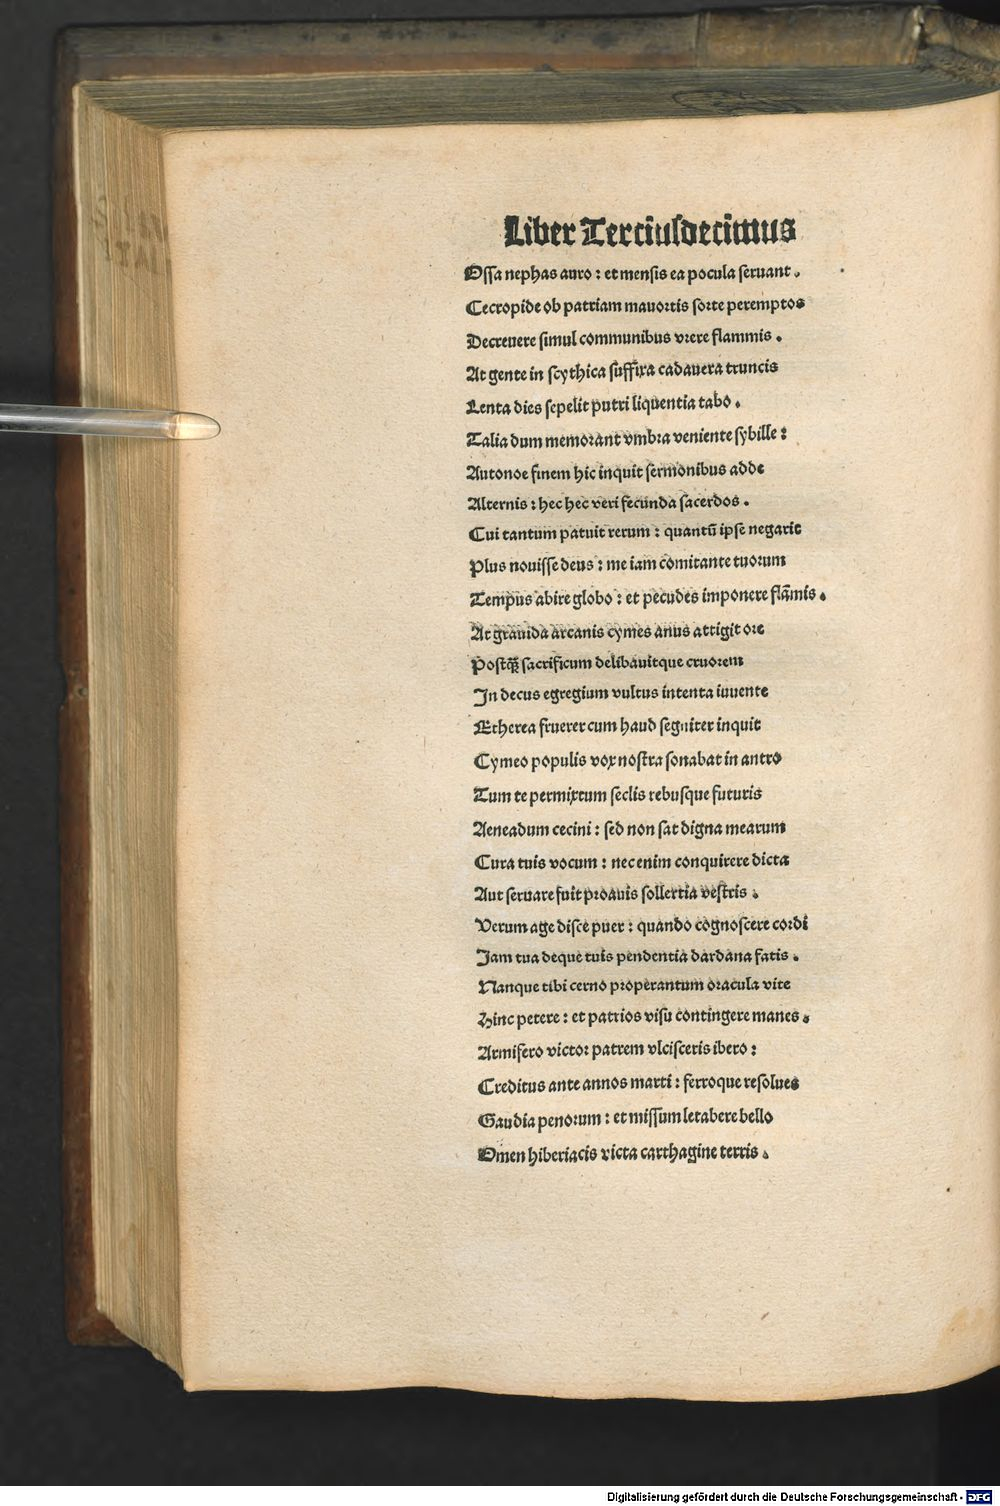 Liber Terciusdecimus
Ossa nephas auro : et mensis ea pocula seruant .
Cecropide ob patriam mauortis sorte peremptos
Decreuere simul communibus vrere flammis .
At gente in scythica suffixa cadauera truncis
Lenta dies sepelit putri liquentia tabo .
Talia dum memorant vmbra veniente sybille :
Autonoe finem hic inquit sermonibus adde
Alternis : hec hec veri fecunda sacerdos .
Cui tantum patuit rerum : quantū ipse negarit
Plus nouisse deus : me iam comitante tuorum
Tempus abire globo : et pecudes imponere flāmis .
At grauida arcanis cymes anus attigit ore
Postq̃ sacrificum delibauitque cruorem
In decus egregium vultus intenta iuuente
Etherea fruerer cum haud segniter inquit
Cymeo populis vox nostra sonabat in antro
Tum te permixtum seclis rebusque futuris
Aeneadum cecini : sed non sat digna mearum
Cura tuis vocum : nec enim conquirere dicta
Aut seruare fuit proauis sollertia vestris .
Verum age disce puer : quando cognoscere cordi
Iam tua deque tuis pendentia dardana fatis .
Nanque tibi cerno properantum oracula vite
Hinc petere : et patrios visu contingere manes .
Armifero victor patrem vlcisceris ibero :
Creditus ante annos marti : ferroque resolues
Gaudia penorum : et missum letabere bello
Omen hiberiacis victa carthagine terris .
Digitalisierung gefördert durch die Deutsche Forschungsgemeinschaft - DFG